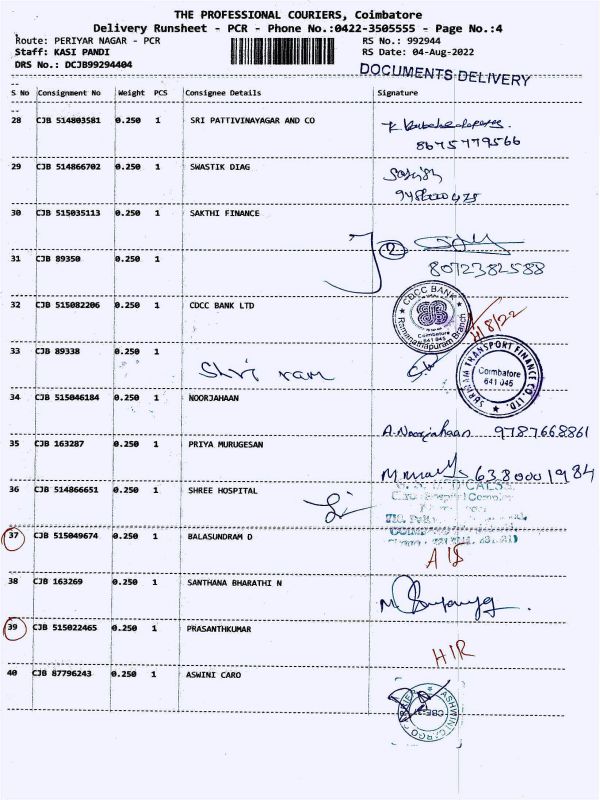 THE PROFESSIONAL COURIERS, Coimbatore
Delivery Runsheet - PCR - Phone No.:0422-3505555 - Page No.:4
Route: PERIYAR NAGAR - PCR
RS No.: 992944
Staff: KASI PANDI
RS Date: 04-Aug-2022
DRS No.: DCJB99294404
DOCUMENTS DELIVERY
S No Consignment No Weight PCS Consignee Details Signature
28 CJB 514803581 0.250 1 SRI PATTIVINAYAGAR AND CO
8675779566
29 CJB 514866702 0.250 1 SWASTIK DIAG
30 CJB 515035113 0.250 1 SAKTHI FINANCE
2
31 CJB 89350 0.250 1
8072382588
32 CJB 515082206 0.250 1 CDCC BANK LTD
CDCC BANK
Coimbatore
641 045
Ramanathapuram Branch
4/8/22
33 CJB 89338 0.250 1
Shri ram
SHRIRAM TRANSPORT FINANCE CO. LTD.
Coimbatore
641 045
34 CJB 515046184 0.250 1 NOORJAHAAN
A.Noorjahaan 9787668861
35 CJB 163287 0.250 1 PRIYA MURUGESAN
6380001984
36 CJB 514866651 0.250 1 SHREE HOSPITAL
37 CJB 515049674 0.250 1 BALASUNDRAM D
38 CJB 163269 0.250 1 SANTHANA BHARATHI N
39 CJB 515022465 0.250 1 PRASANTHKUMAR
HIR
40 CJB 87796243 0.250 1 ASWINI CARO